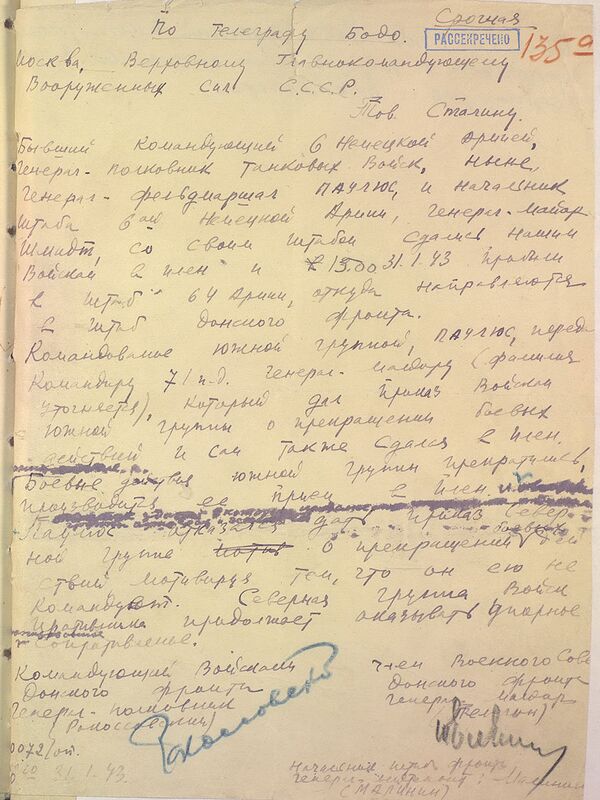 Срочная
По Телеграфу Бодо.
РАССЕКРЕЧЕНО
135а
Москва, Верховному Главнокомандующему
Вооруженных Сил С.С.С.Р.
Тов. Сталину.
Бывший Командующий 6 Немецкой Армией,
Генерал-полковник Танковых Войск, ныне,
Генерал-фельдмаршал ПАУЛЮС, и Начальник
Штаба 6ой Немецкой Армии, Генерал-Майор
Шмидт, со своим Штабом сдались нашим
Войскам в плен и в 15.00 31.1.43 прибыли
в Штаб 64 Армии, откуда направляются
в Штаб Донского фронта.
Командование южной группой, ПАУЛЮС, переда
Командиру 71 п.д. Генерал-майору (фамилия
уточняется), который дал приказ Войскам
южной группы о прекращении боевых
действий и сам также сдался в плен.
Боевые действия южной группы прекратились,
производится ее прием в плен
Паулюс отказался дать приказ Север-
ной группе о прекращении боевых дей
ствий мотивируя тем, что он ею не
Командует. Северная группа Войск
Противника продолжает оказывать упорное
Сопротивление.
Командующий Войсками
Донского фронта
Генерал-полковник
(Рокоссовский)
Рокоссовский
Член Военного Сове
Донского фронта
Генерал-майор
(Телегин)
0072/оп.
31.1.43
Начальник штаба фронта
Генерал-лейтенант: Малинин
(МАЛИНИН)